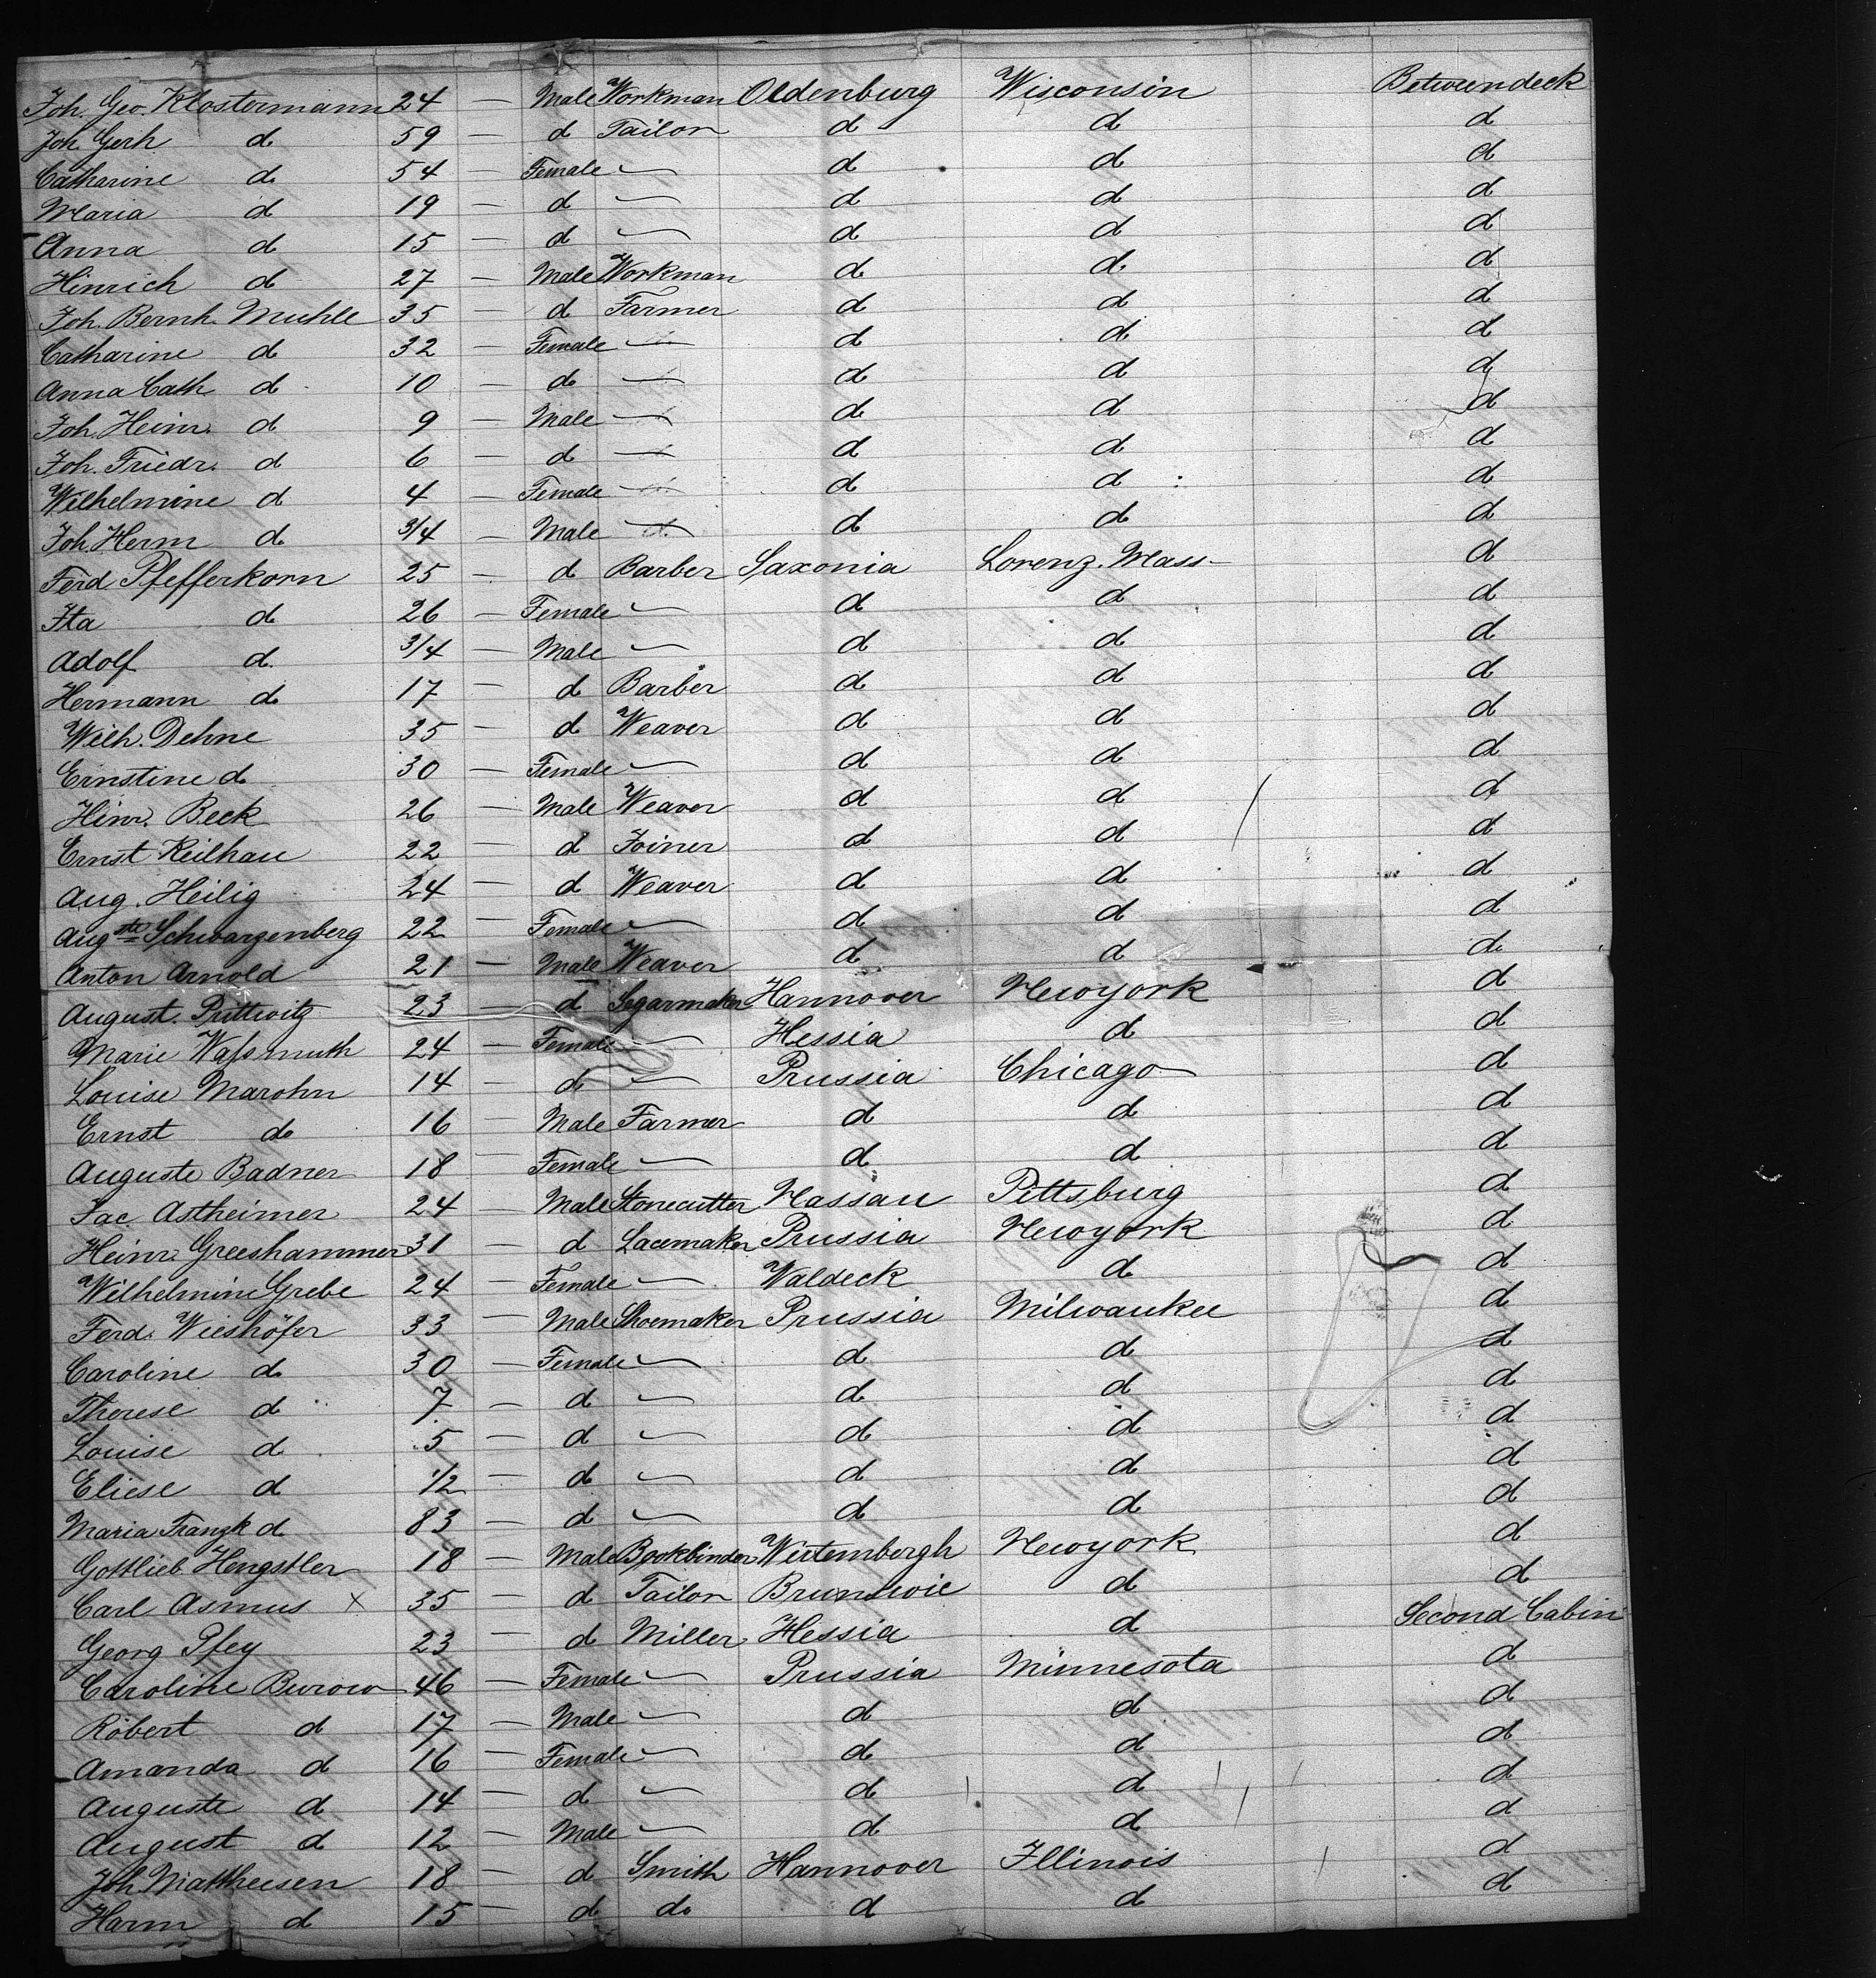 Joh. Geo. Klostermann 24 — Male Workman Oldenburg Wisconsin Betweendeck
Joh Gerh d 59 — d Tailor d d d
Catharine d 54 — Female — d d d
Maria d 19 — d — d d d
Anna d 15 — d — d d d
Hinrich d 27 — Male Workman d d d
Joh. Bernh. Muhle 35 — d Farmer d d d
Catharine d 32 — Female — d d d
Anna Cath d 10 — d — d d d
Joh. Heinr. d 9 — Male — d d d
Joh. Friedr. d 6 — d — d d d
Wilhelmine d 4 — Female — d d d
Joh. Herm d 3/4 — Male — d d d
Ferd Pfefferkorn 25 — d Barber Saxonia Lorenz. Mass d
Ita d 26 — Female — d d d
Adolf d 3/4 — Male — d d d
Hermann d 17 — d Barber d d d
Wilh. Dehne 35 — d Weaver d d d
Ernstine d 30 — Female — d d d
Hinr. Beck 26 — Male Weaver d d d
Ernst Keilhau 22 — d Joiner d d d
Aug. Heilig 24 — d Weaver d d d
Augste Schwarzenberg 22 — Female — d d d
Anton Arnold 21 — Male Weaver d d d
August. Prittwitz 23 — d Segarmaker Hannover Newyork d
Marie Wassmuth 24 — Female — Hessia d d
Louise Marohn 14 — d — Prussia Chicago d
Ernst do 16 — Male Farmer d d d
Auguste Badner 18 — Female — d d d
Jac. Astheimer 24 — Male Stonecutter Nassau Pittsburg d
Heinr. Greeshammer 31 — d Lacemaker Prussia Newyork d
Wilhelmine Grebe 24 — Female — Waldeck d d
Ferd. Wieshöfer 33 — Male Shoemaker Prussia Milwaukee d
Caroline d 30 — Female — d d d
Therese d 7 — d — d d d
Louise d 5 — d — d d d
Eliese d 1/2 — d — d d d
Maria Franzk d 83 — d — d d d
Gottlieb Hengstler 18 — Male Bookbinder Wirtembergh Newyork d
Carl Asmus x 35 — d Tailor Brunswic d d
Georg Pfey 23 — d Miller Hessia d Second Cabin
Caroline Burow 46 — Female — Prussia Minnesota d
Robert d 17 — Male — d d d
Amanda d 16 — Female — d d d
Auguste d 14 — d — d d d
August d 12 — Male — d d d
Joh Mattheesen 18 — d Smith Hannover Illinois d
Harm d 15 — d do d d d